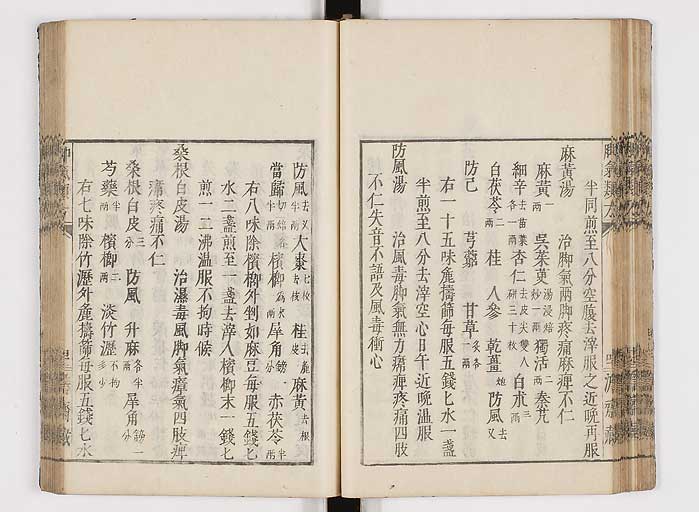 半同煎至八分空腹去滓服之近晚再服
麻黄湯　治脚氣兩脚疼痛麻痺不仁
麻黄一兩　吳茱萸湯浸焙炒一兩　獨活二兩　秦艽
細辛去苗葉各一兩　杏仁去皮尖雙人研三十枚　白朮三兩
白茯苓二兩　桂　人參　乾薑炮　防風去叉
防己　芎藭　甘草炙各
右一十五味麁擣篩每服五錢七水一盞
半煎至八分去滓空心日午近晚溫服
防風湯　治風毒脚氣無力頑痺疼痛四肢
不仁失音不語及風毒衝心
防風去叉半兩　大棗七枚去核　桂去麁皮　麻黄去根
當歸切焙各半兩　檳榔為末一兩　犀角鎊一分　赤茯苓半兩
右八味除檳榔外剉如麻豆每服五錢七
水二盞煎至一盞去滓入檳榔末一錢七
煎一二沸溫服不拘時候
桑根白皮湯　治濕毒風脚氣瘴氣四肢痺
痛疼痛不仁
桑根白皮三分　防風　升麻各半兩　犀角鎊一分
芍藥半兩　檳榔二兩　淡竹瀝不拘多少
右七味除竹瀝外麁擣篩每服五錢七水